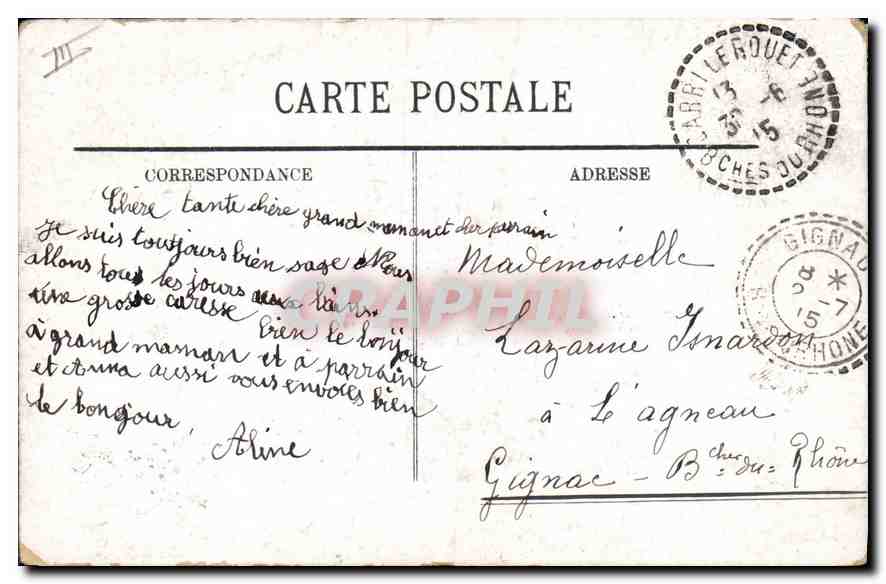 III
CARTE POSTALE
CARRI LE ROUET
13 -6
15
BCHES DU RHONE
CORRESPONDANCE
Chère tante chère grand maman et cher parrain
Je suis toutjours bien sage Nous
allons tous les jours aux bains
une grosse caresse bien le bonjour
à grand maman et à parrain
et Anna aussi vous envoies bien
le bonjour,
Aline
ADRESSE
GIGNAC
8 *
2 -7
15
B DU RHONE
Mademoiselle
Lazarine Isnardon
à L'agneau
Gignac - Bches du Rhône
CPAPHIL